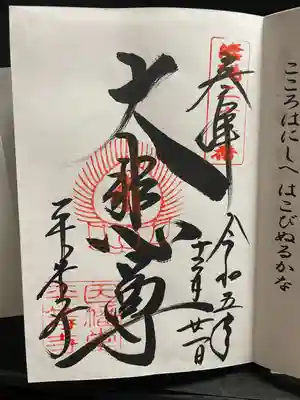 こころはにしへ はこびぬるかな
奉拝
令和五年
十二月廿一日
大悲尊
平等寺